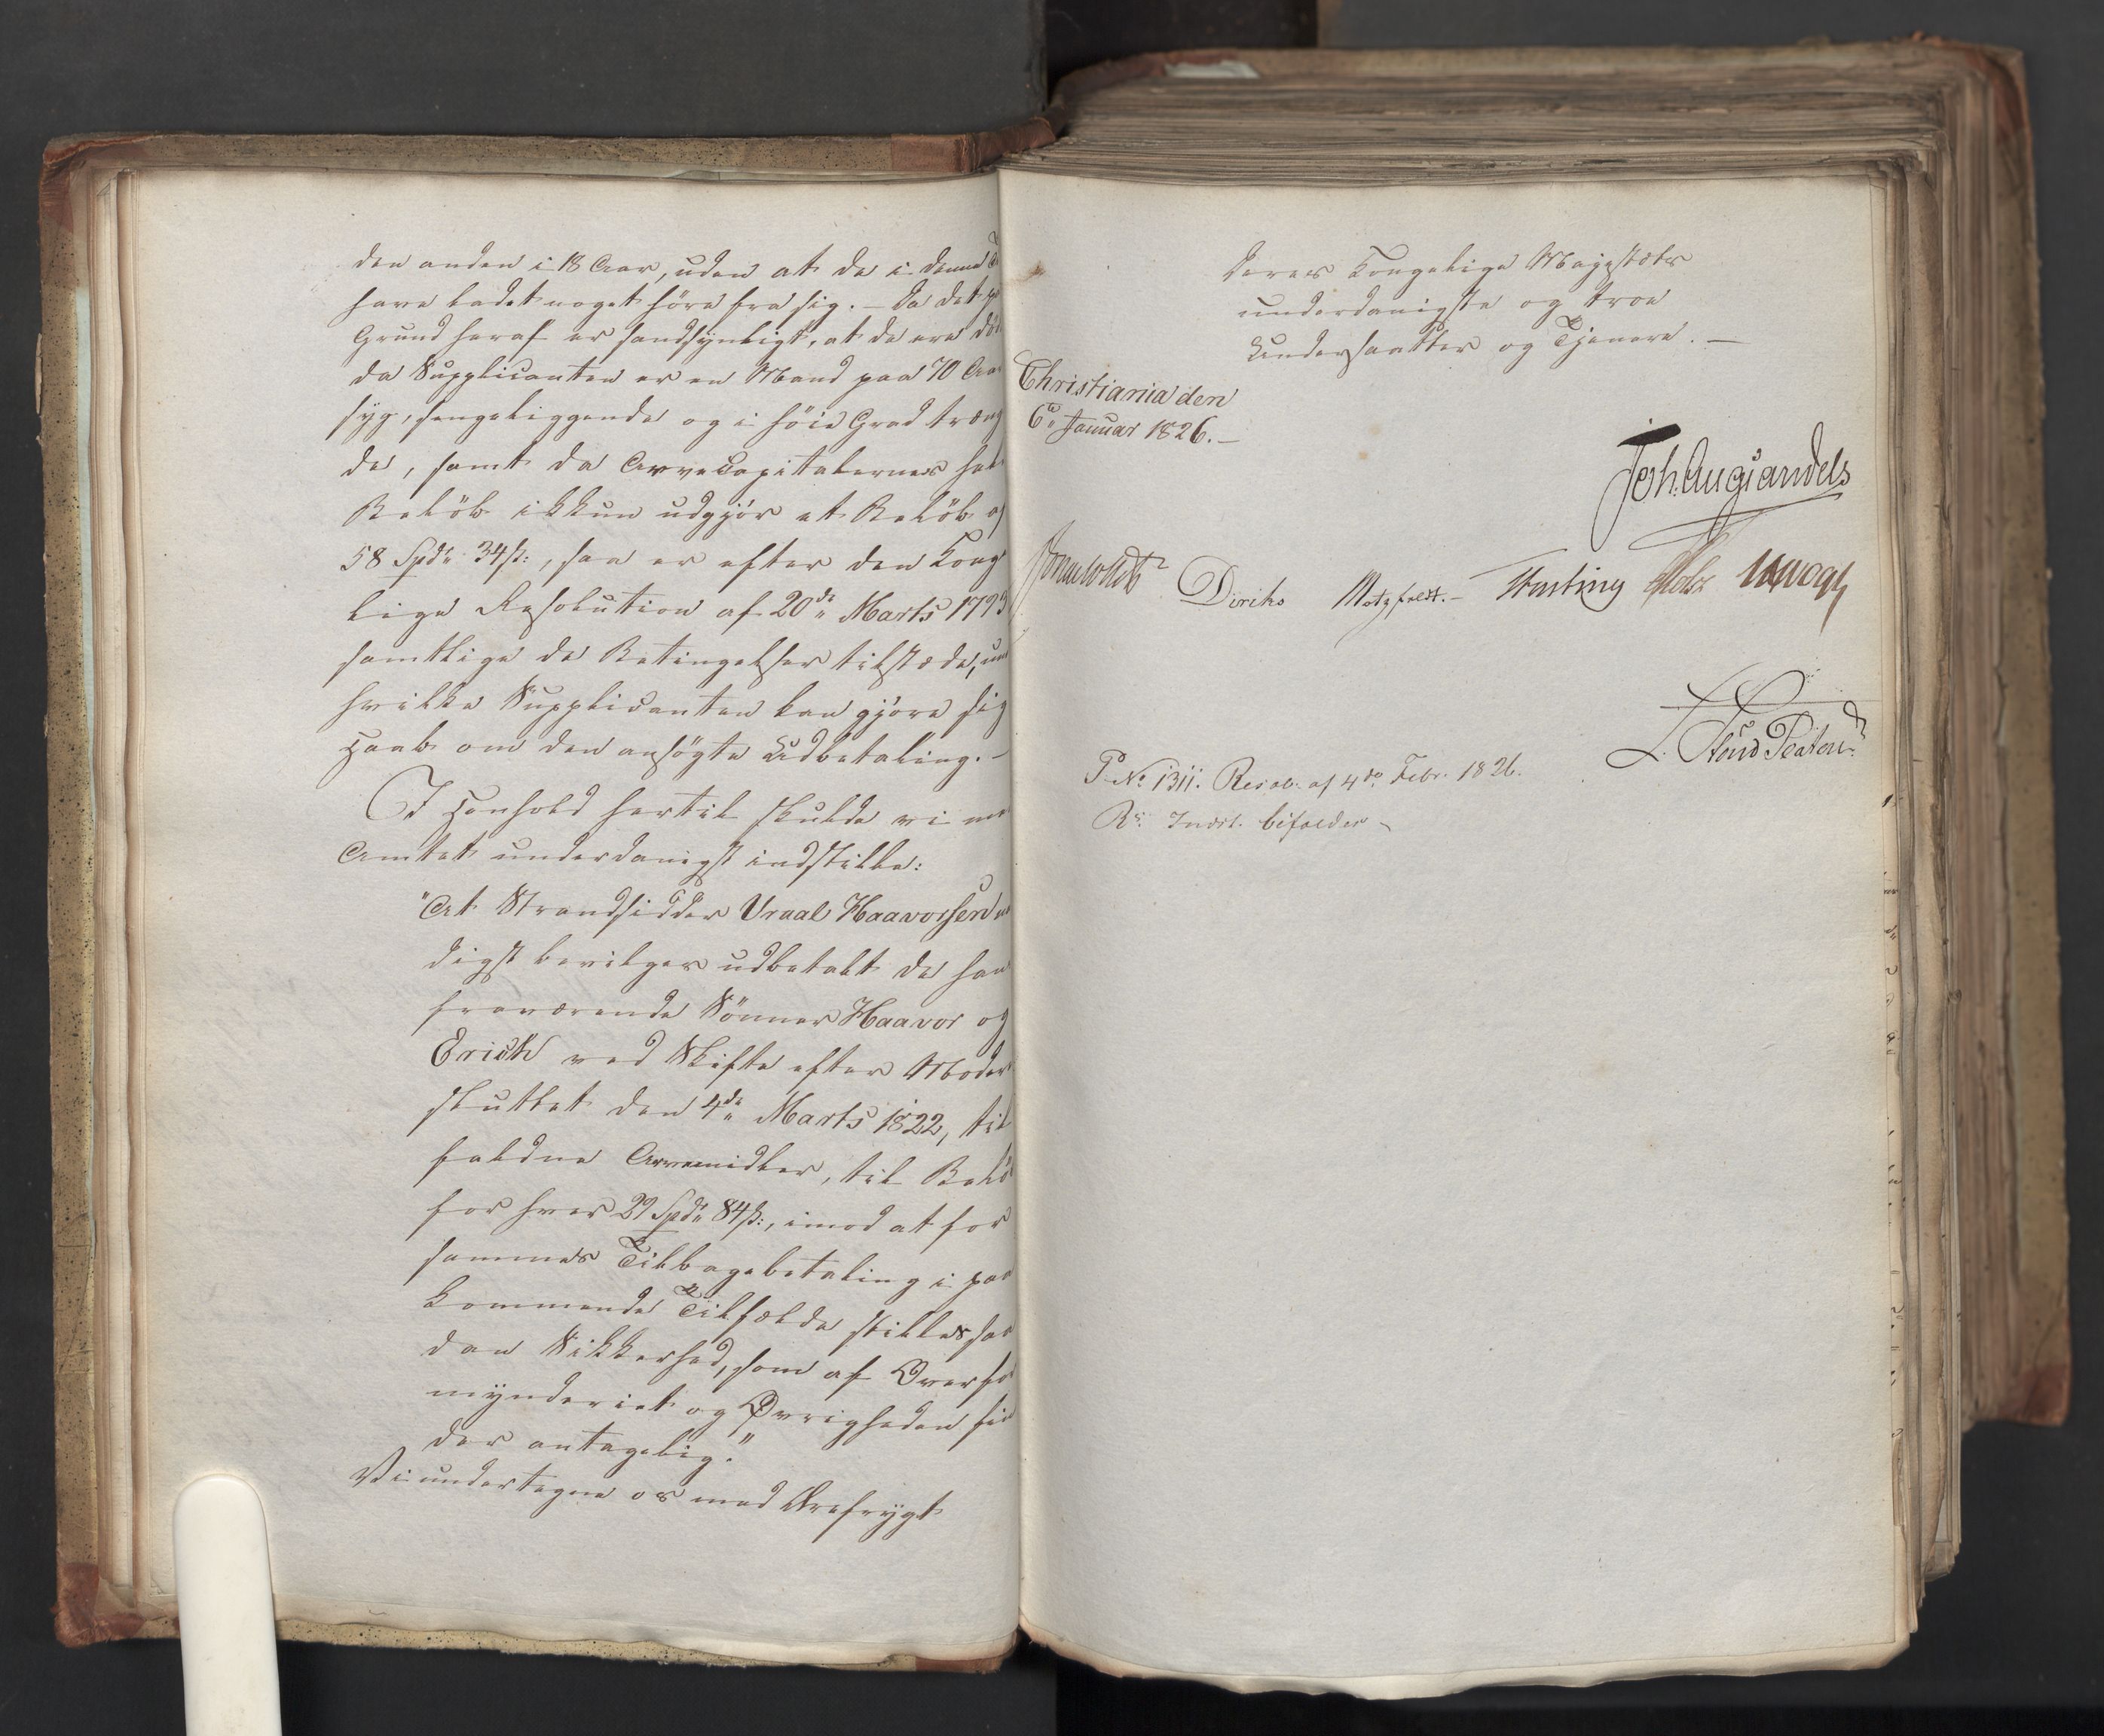 den anden i 18 Aar, uden at de i denne
have ladet noget høre fra sig. – Da det
Grund heraf er sandsynligt, at de ere
da Supplicanten er en Mand paa 70 Aar
syg, sengeliggende og i høi Grad træng
de, samt da Arvecapitalernes
Beløb ikkun udgjør et Beløb af
58 Spd. 34 ß:, saa er efter den Konge
lige Resolution af 20de Marts 1793
samtlige de Betingelser tilstæde,
hvilke Supplicanten kan gjøre sig
Haab om den ansøgte Udbetaling. –
I Henhold hertil skulde vi med
Amtet underdanigst indstille:
"At Strandsidder Vraal Haavorsen
digst bevilges udbetalt de hans
fraværende Sönner Haavor og
Erick ved Skifte efter Moder
sluttet den 4de Marts 1822, til
faldne Arvemidler, til Beløb
for hver 29 Spd. 84 ß:, imod at for
sammes Tilbagebetaling i paa
kommende Tilfælde stilles saa
dan Sikkerhed, som af Overfor
mynderiet og Øvrigheden fin
des antagelig."
Vi undertegne os med Ærefrygt
Deres Kongelige Majestæts
underdanigste og troe
Undersaatter og Tjenere. –
Christiania den
6te Januar 1826. –
Joh. Aug. Sandels
Diriks Motzfeldt. – Krogh
P No 1311. Resol. af 4de Febr. 1826.
Rs. Indst. bifaldes